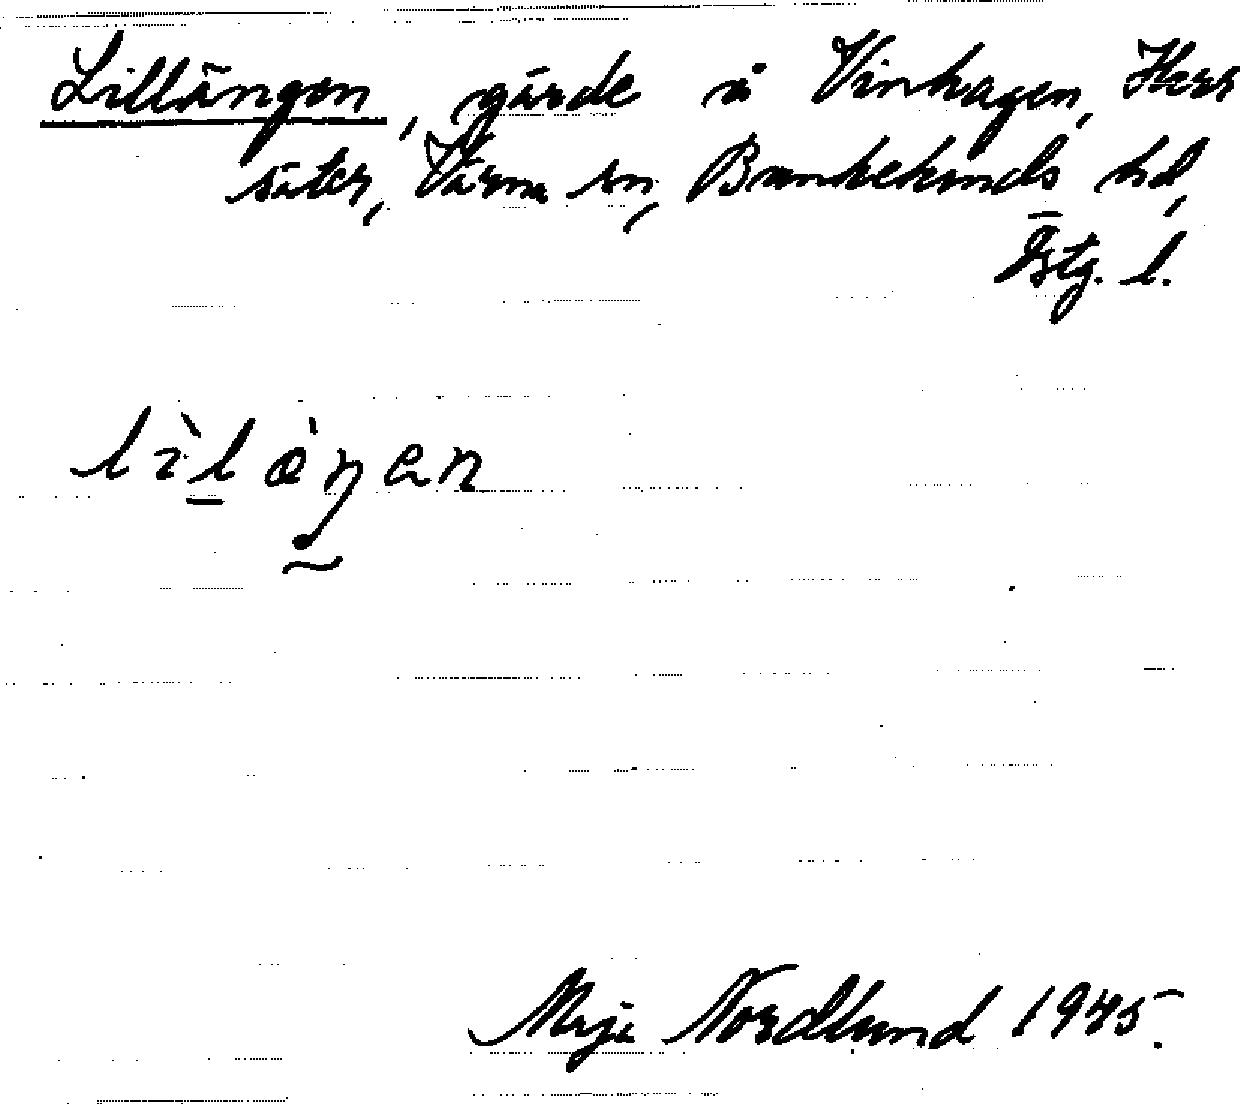 Lillängen, gärde å Vinhagen, Herr
säter, Värna sn, Bankekinds hd,
Östg. l.
lìlàŋen
Maja Nordlund 1945.